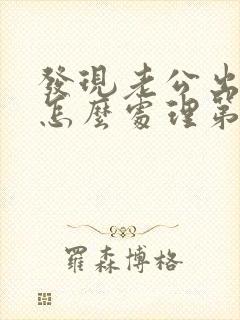 發現老公出
怎麼處理第
羅森博格